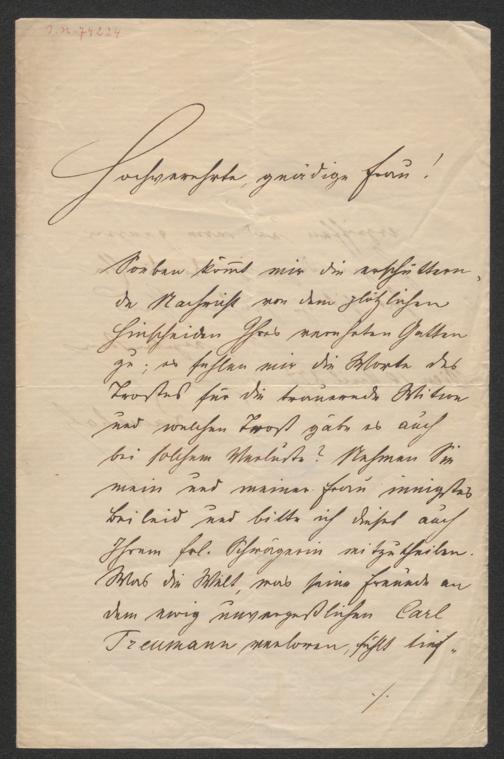 J.N. 74224
Hochverehrte, gnädige Frau!
Soeben kom̄t mir die erschüttern-
de Nachricht von dem plötzlichen
Hinscheiden Ihres verehrten Gatten
zu; es fehlen mir die Worte des
Trostes für die trauernde Witwe
und welchen Trost gäbe es auch
bei solchem Verluste? Nehmen Sie
mein und meiner Frau innigstes
Beileid und bitte ich dieses auch
Ihrem Frl. Schwägerin mitzutheilen.
Was die Welt, was seine Freunde an
dem ewig unvergeßlichen Carl
Treumann verloren, fühlt tief-
./.